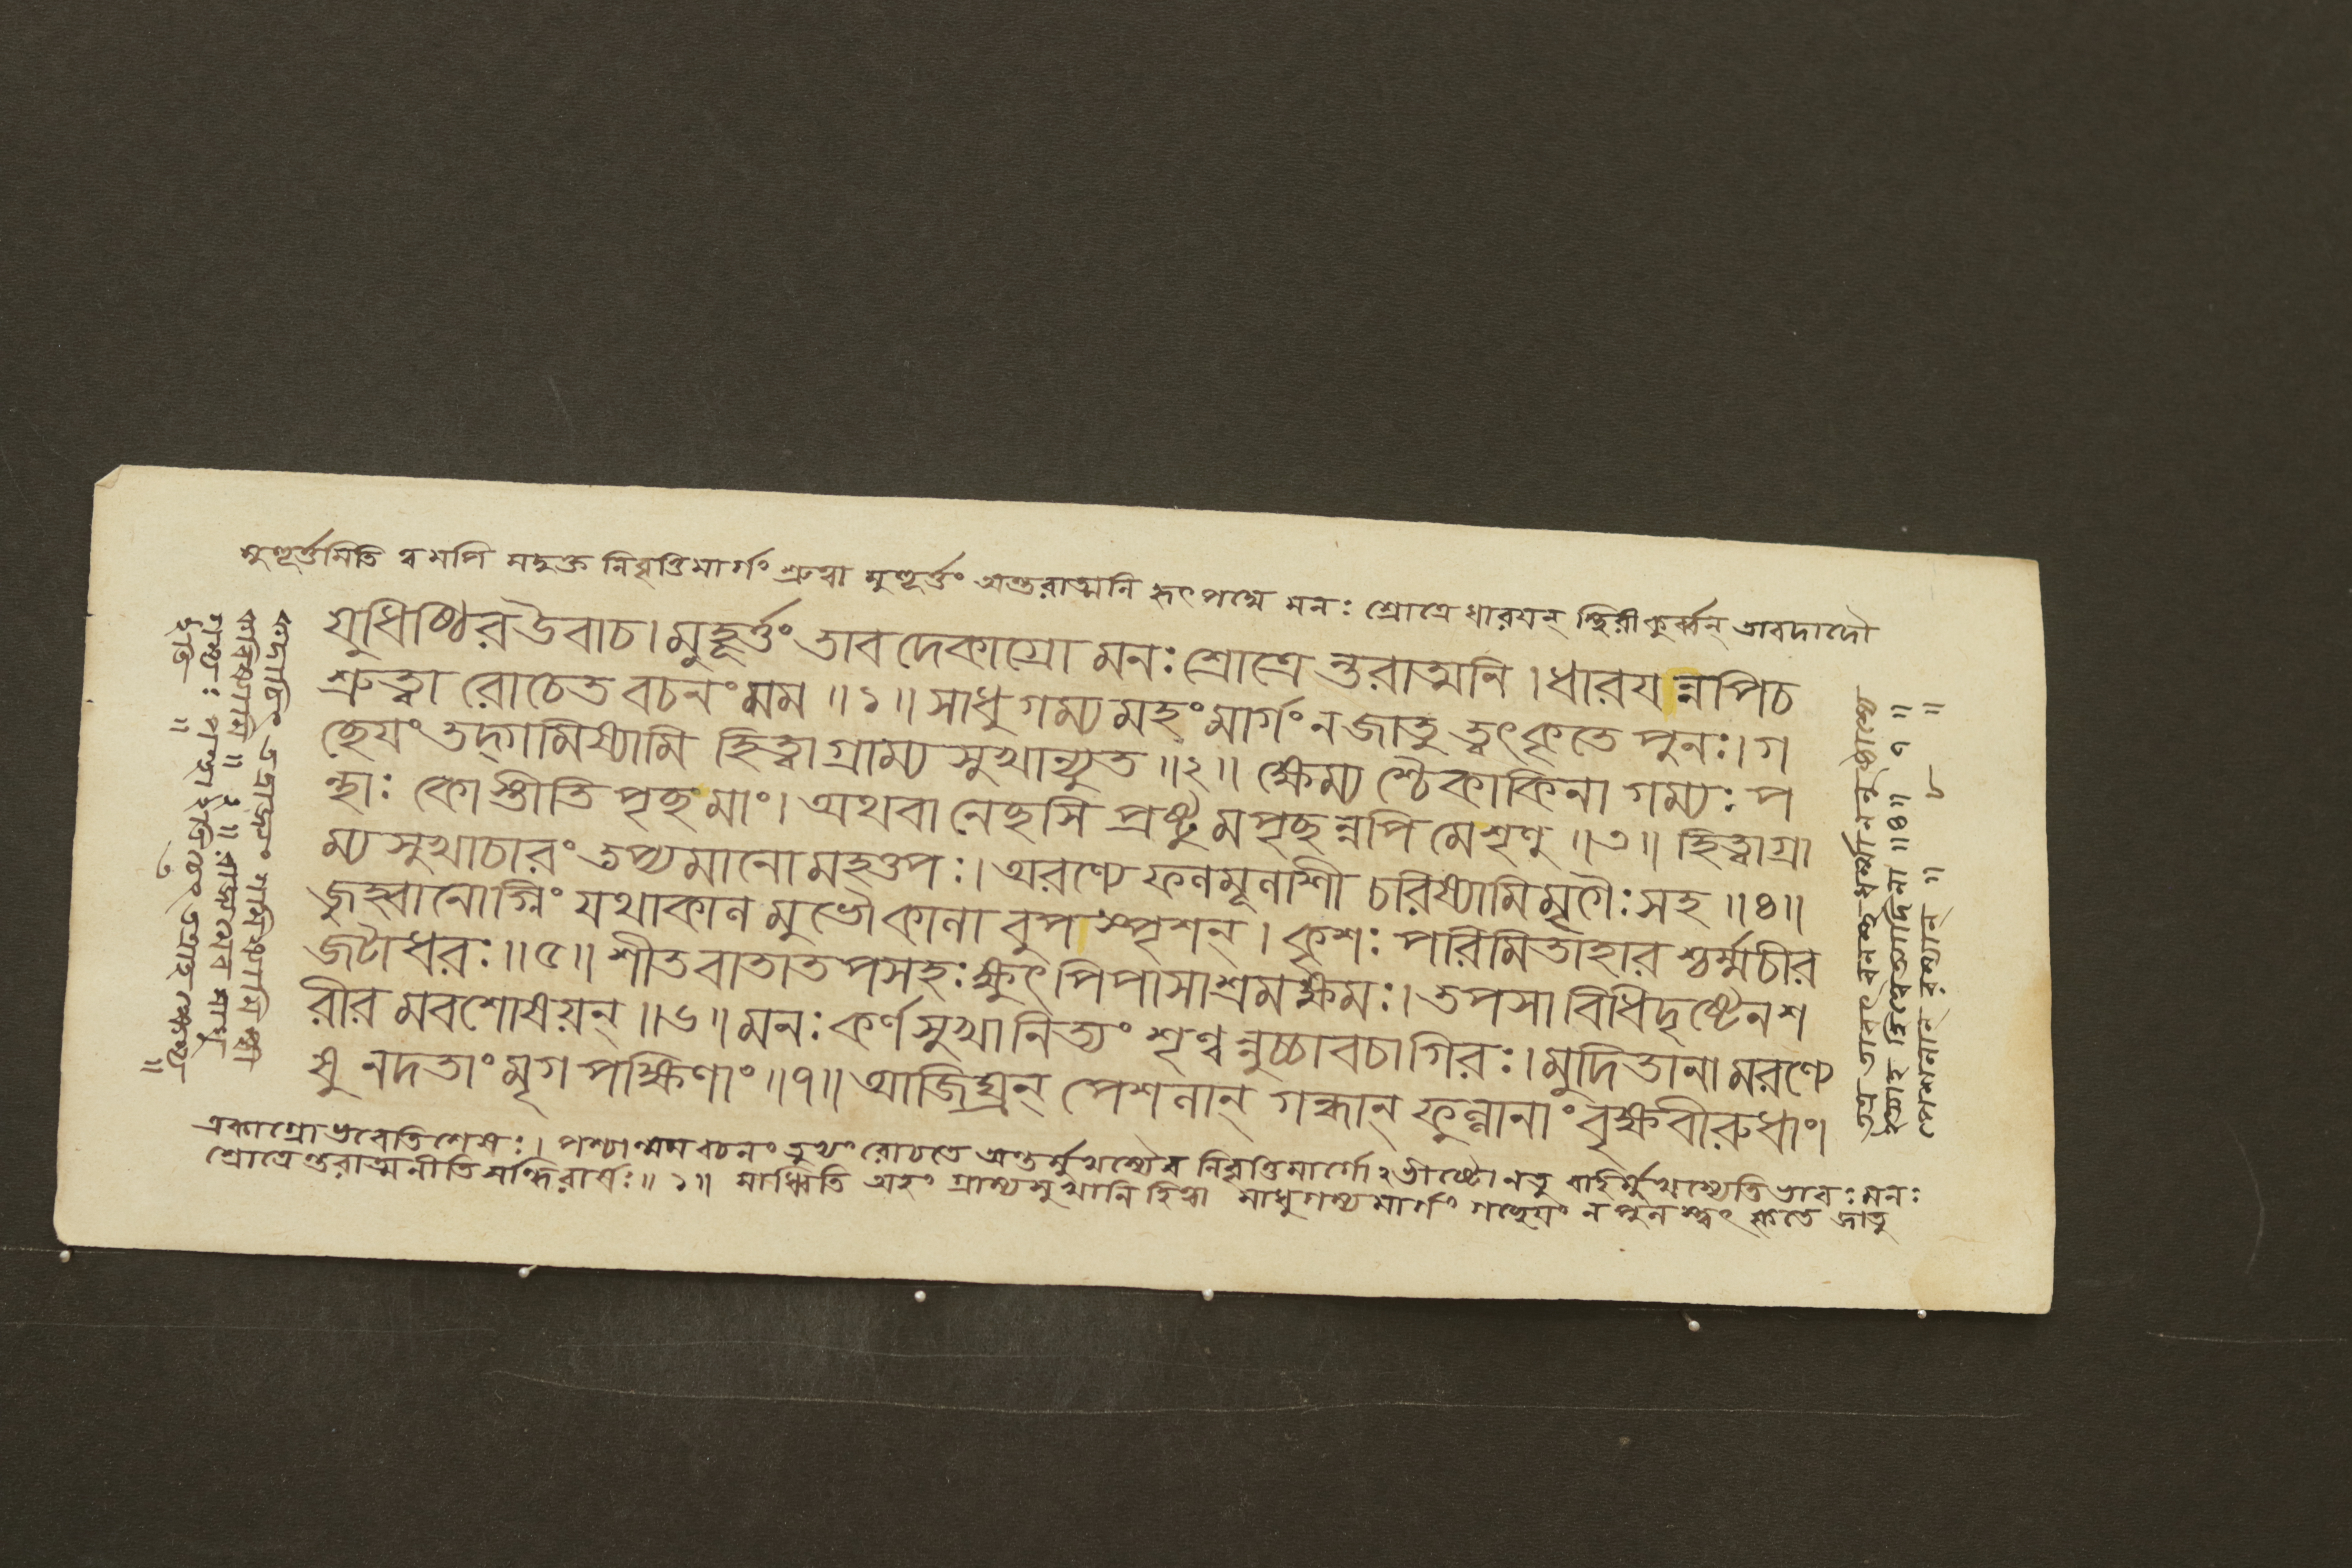 মুহূর্ত্তমিতি ত্বমপি মদুক্ত নিবৃত্তিমার্গং শ্রুত্বা মুহূর্ত্তং অন্তরাত্মনি হৃৎপদ্মে মনঃ শ্রোত্রে ধারযন্ স্থিরীকুর্ব্বন্ তাবদাদৌ
যুধিষ্ঠির উবাচ। মুহূর্ত্তং তাব দেকাগ্রো মনঃ শ্রোত্রে ন্তরাত্মনি। ধারয ন্নপি চ
শ্রুত্বা রোচেত বচনং মম ॥১॥ সাধু গম্য মহং মার্গং ন জাতু ত্বৎকৃতে পুনঃ। গ
ছেযং তদ্গামিষ্যামি হিত্বা গ্রাম্য সুখান্যুত ॥২॥ ক্ষেম্য শ্চৈকাকিনা গম্যঃ প
ন্থাঃ কো স্তীতি পৃছ মাং। অথবা নেছসি প্রষ্টু মপৃছ ন্নপি মে শৃণু ॥৩॥ হিত্বা গ্রা
ম্য সুখাচারং তপ্যমানো মহত্তপঃ। অরণ্যে ফলমূলাশী চরিষ্যামি মৃগৈঃ সহ ॥৪॥
জুহ্বানোগ্নিং যথাকাল মুভৌ কালা বুপ স্পৃশন্। কৃশঃ পরিমিতাহার শ্চর্ম্মচীর
জটাধরঃ ॥৫॥ শীতবাতাতপসহঃ ক্ষুৎ পিপাসাশ্রমক্ষমঃ। তপসা বিধিদৃষ্টেন শ
রীর মবশোষয়ন্ ॥৬॥ মনঃ কর্ণসুখা নিত্যং শৃণ্ব ন্নুচ্চাবচা গিরঃ। মুদিতানা মরণ্যে
ষু নদতাং মৃগ পক্ষিণাং ॥৭॥ আজিঘ্রন্ পেশলান্ গন্ধান্ ফুল্লানাং বৃক্ষবীরুধাং।
একাগ্রো ভবেতি শেষঃ। পশ্চান্মম বচনং তুভ্যং রোচতে অন্তর্মুখস্যৈব নিবৃত্তিমার্গোঽভীষ্টো নতু বহির্ম্মুখস্যেতি ভাবঃ মনঃ
শ্রোত্রেন্তরাত্মনীতি সন্ধিরার্ষঃ ॥১॥ সাধ্বিতি অহং গ্রাম্যসুখানি হিত্বা সাধুগম্য মার্গং গচ্ছেযং ন পুন স্ত্বৎ কৃতে জাতু
কদাচিৎ গমিষ্যামি
করিষ্যামি ॥২॥
ইতি ॥
॥৪॥ ৭॥
পেশলান্ রম্যান্ ॥ ৮ ॥